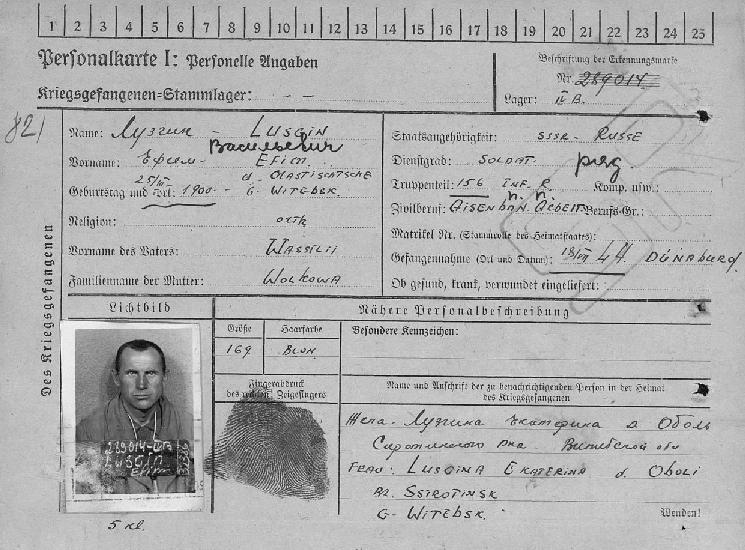 1 2 3 4 5 6 7 8 9 10 11 12 13 14 15 16 17 18 19 20 21 22 23 24 25
Personalkarte I: Personelle Angaben
Kriegsgefangenen=Stammlager: - -
Beschriftung der Erkennungsmarke
Nr. 289014
Lager: IV B.
821
Des Kriegsgefangenen
Name: Лузгин - LUSGIN
Васильевич
Vorname: Ефим - EFIM
25/III d.
Geburtstag und Ort: 1900 - G. WITEBSK.
Religion: orth
Vorname des Vaters: WASSILII
Familienname der Mutter: WOLKOWA
Staatsangehörigkeit: SSSR - RUSSE
Dienstgrad: SOLDAT. ряд.
Truppenteil: 156 INF. R. Komp. usw.:
Zivilberuf: Berufs-Gr.:
Matrikel Nr. (Stammrolle des Heimatstaates):
Gefangennahme (Ort und Datum): 18/VII 44 DÜNABURG.
Ob gesund, krank, verwundet eingeliefert:
Lichtbild
Nähere Personalbeschreibung
Größe
Haarfarbe
169
BLON.
Besondere Kennzeichen:
Fingerabdruck
des rechten Zeigefingers
Name und Anschrift der zu benachrichtigenden Person in der Heimat
des Kriegsgefangenen
Жена. Лузгина Екатерина д Оболь
Сиротинского р-на Витебской обл
FRAU: LUSGINA EKATERINA d. OBOLI
RZ. SSIROTINSK
G- WITEBSK.
Wenden!
289014-IVB
LUSGIN
5 кл.